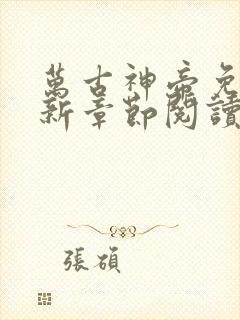 萬古神帝免
新章節閱讀
張碩